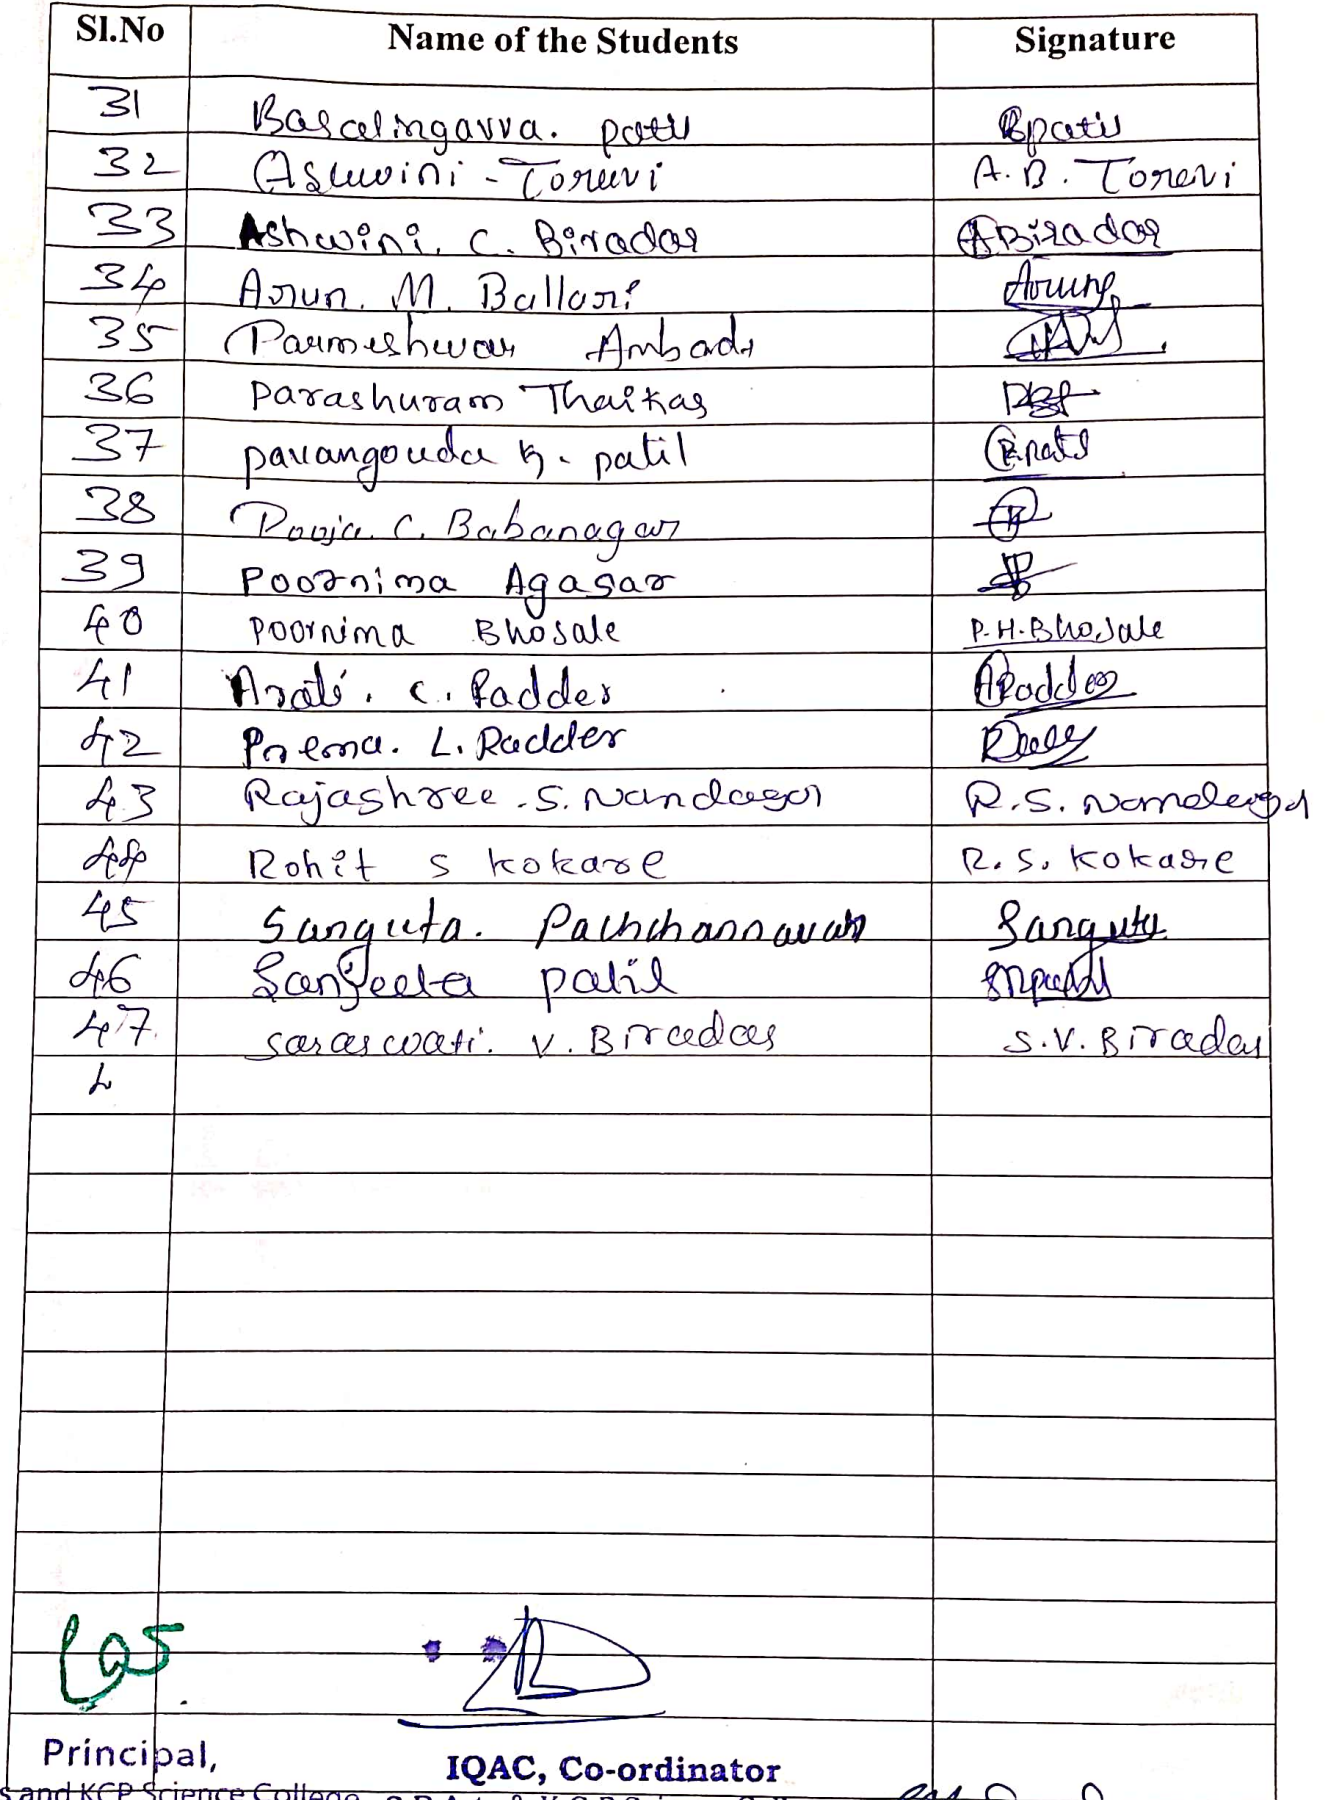 Sl.No Name of the Students Signature
31 Basalingavva. patil Bpatil
32 Aswini - Torevi A. B. Torevi
33 Ashwini. C. Biradar ABiradar
34 Arun. M. Ballari Arun
35 Parmeshwar Ambadi
36 Parashuram Thaikar
37 pavangouda k. patil
38 Pooja. C. Babanagar
39 Poornima Agasar
40 Poornima Bhosale P.H.Bhosale
41 Arati. C. Radder ARadder
42 Prema. L. Radder
43 Rajashree . S. Nandagol R.S. Nandagol
44 Rohit S Kokare R. S. Kokare
45 Sangeeta. Pachchannavar Sangeeta
46 Sangeeta patil
47 saraswati. V. Biradar S.V. Biradar
Principal, IQAC, Co-ordinator
and KCP Science College